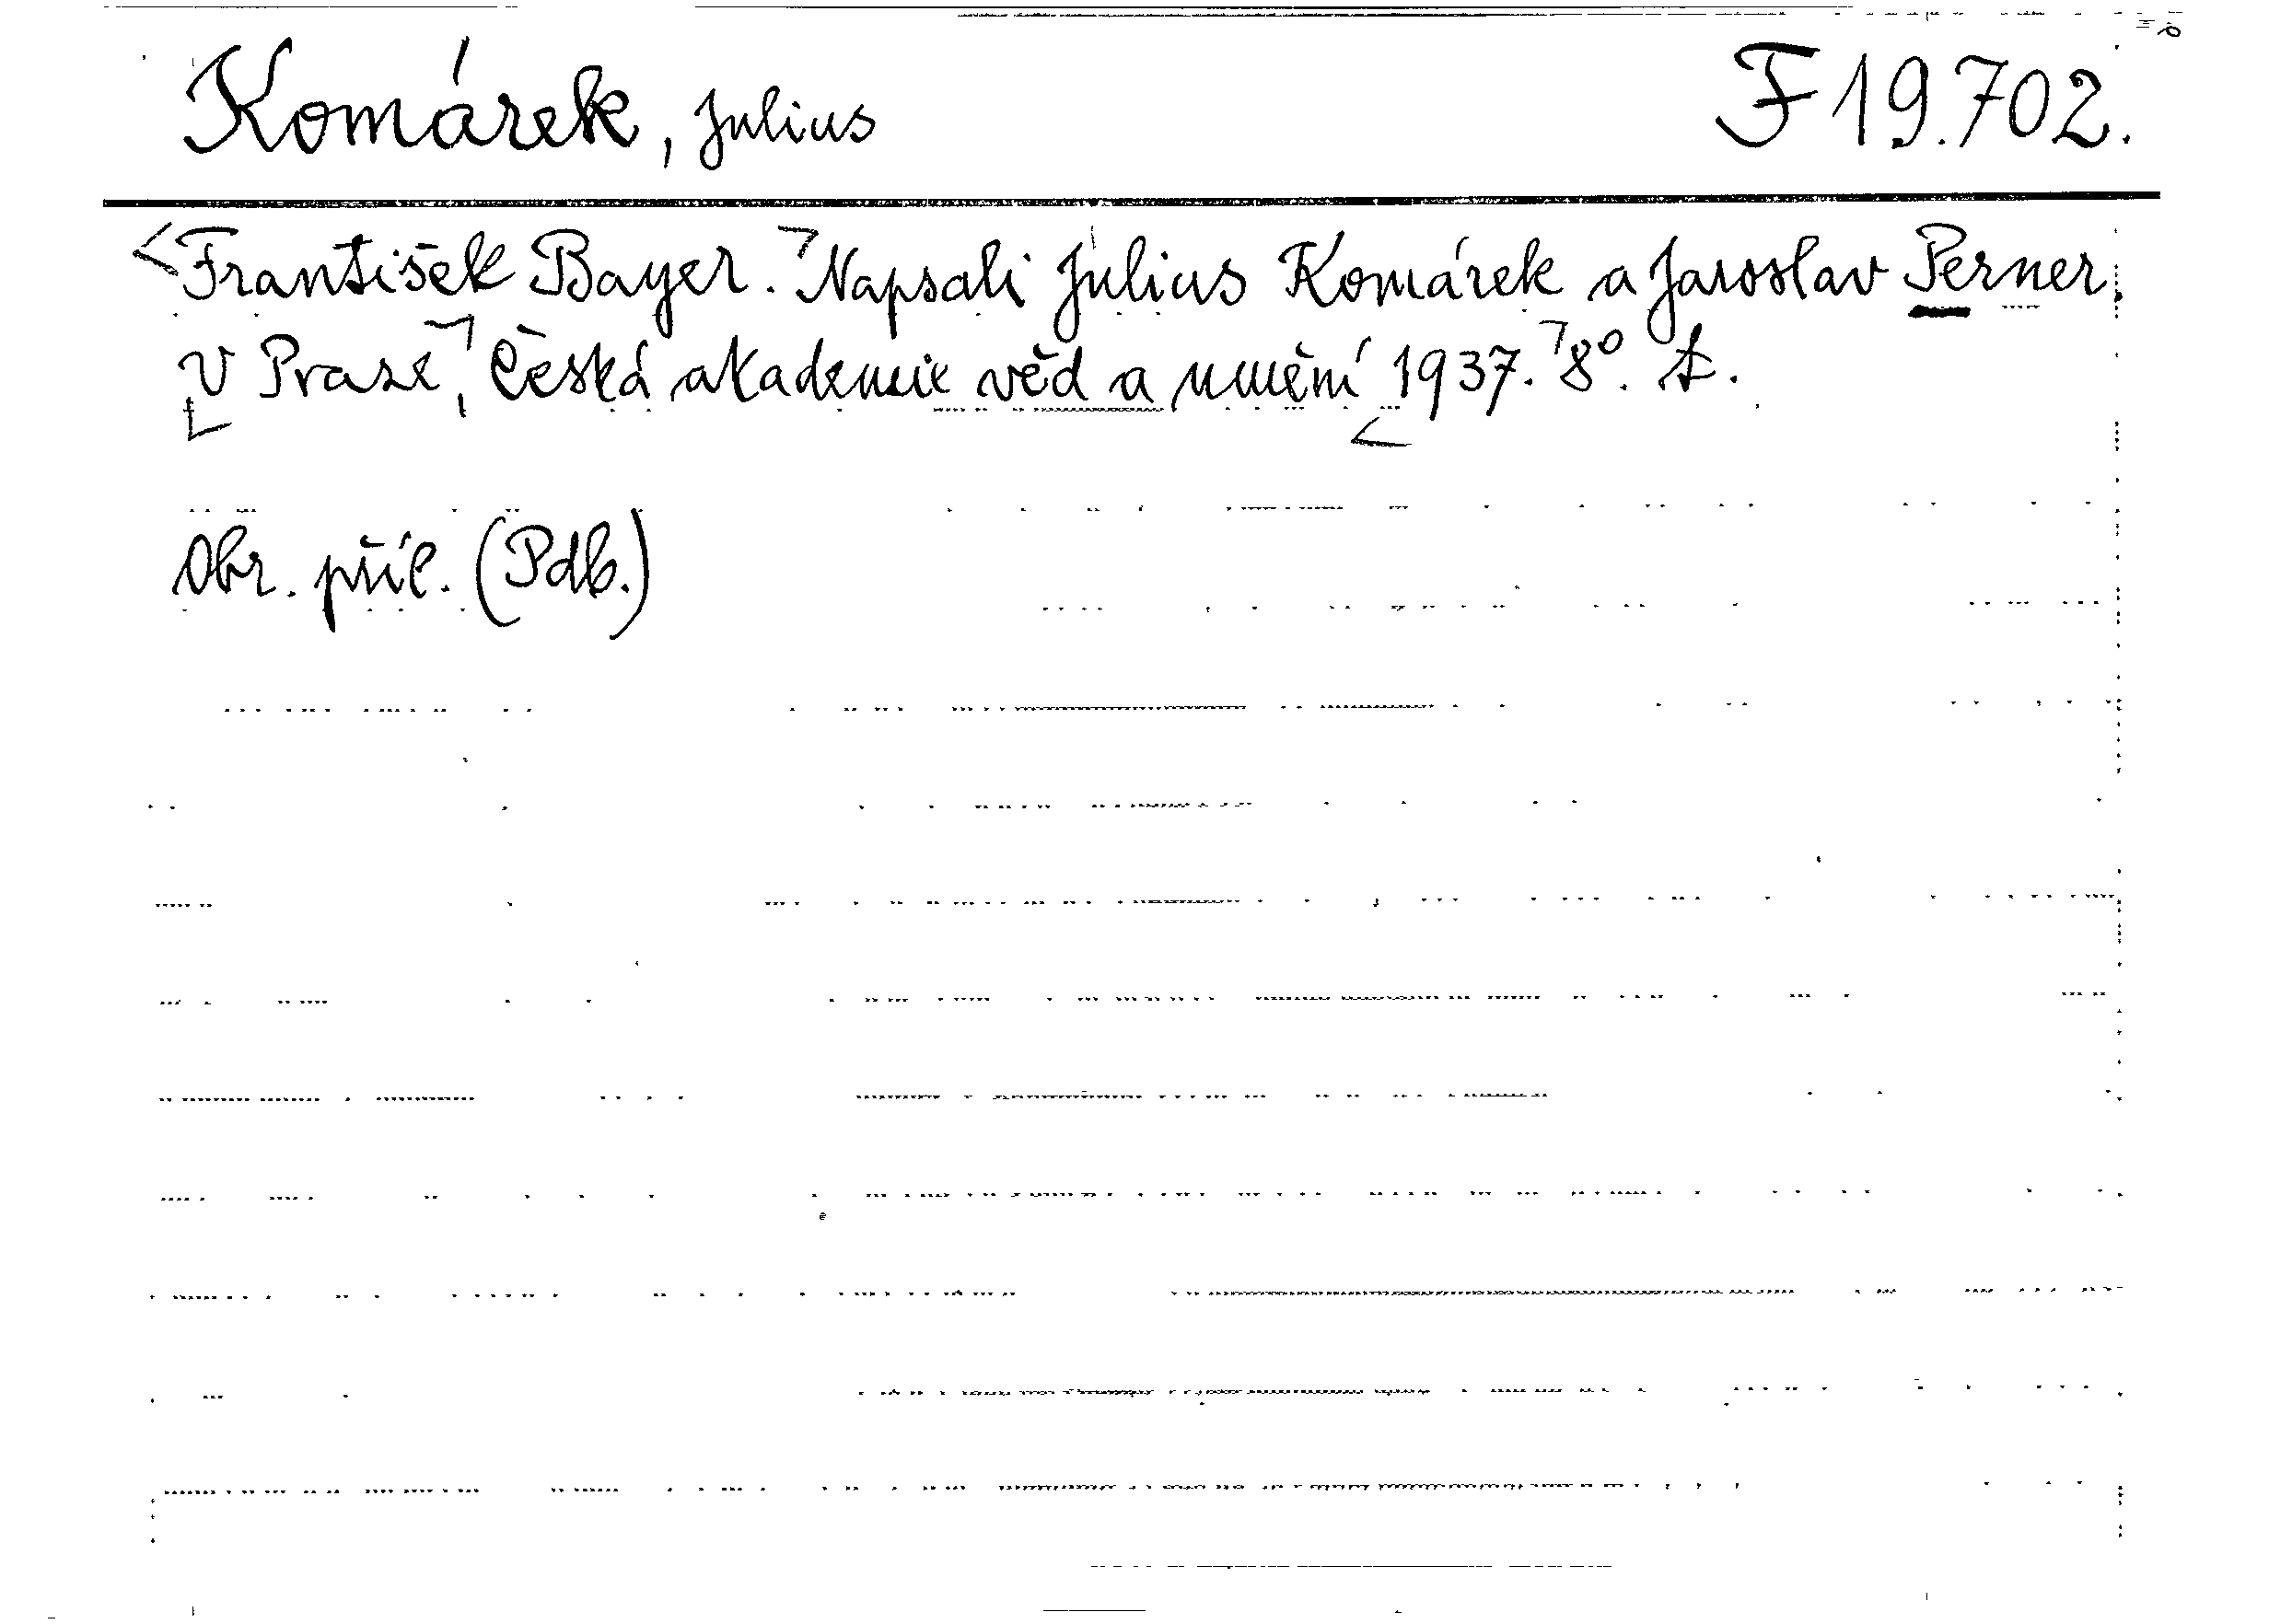 Komárek, Julius F 19.702.
František Bayer. Napsali Julius Komárek a Jaroslav Perner.
V Praze, Česká akademie věd a umění 1937. 8°. A.
Obr. příl. (Pdb.)